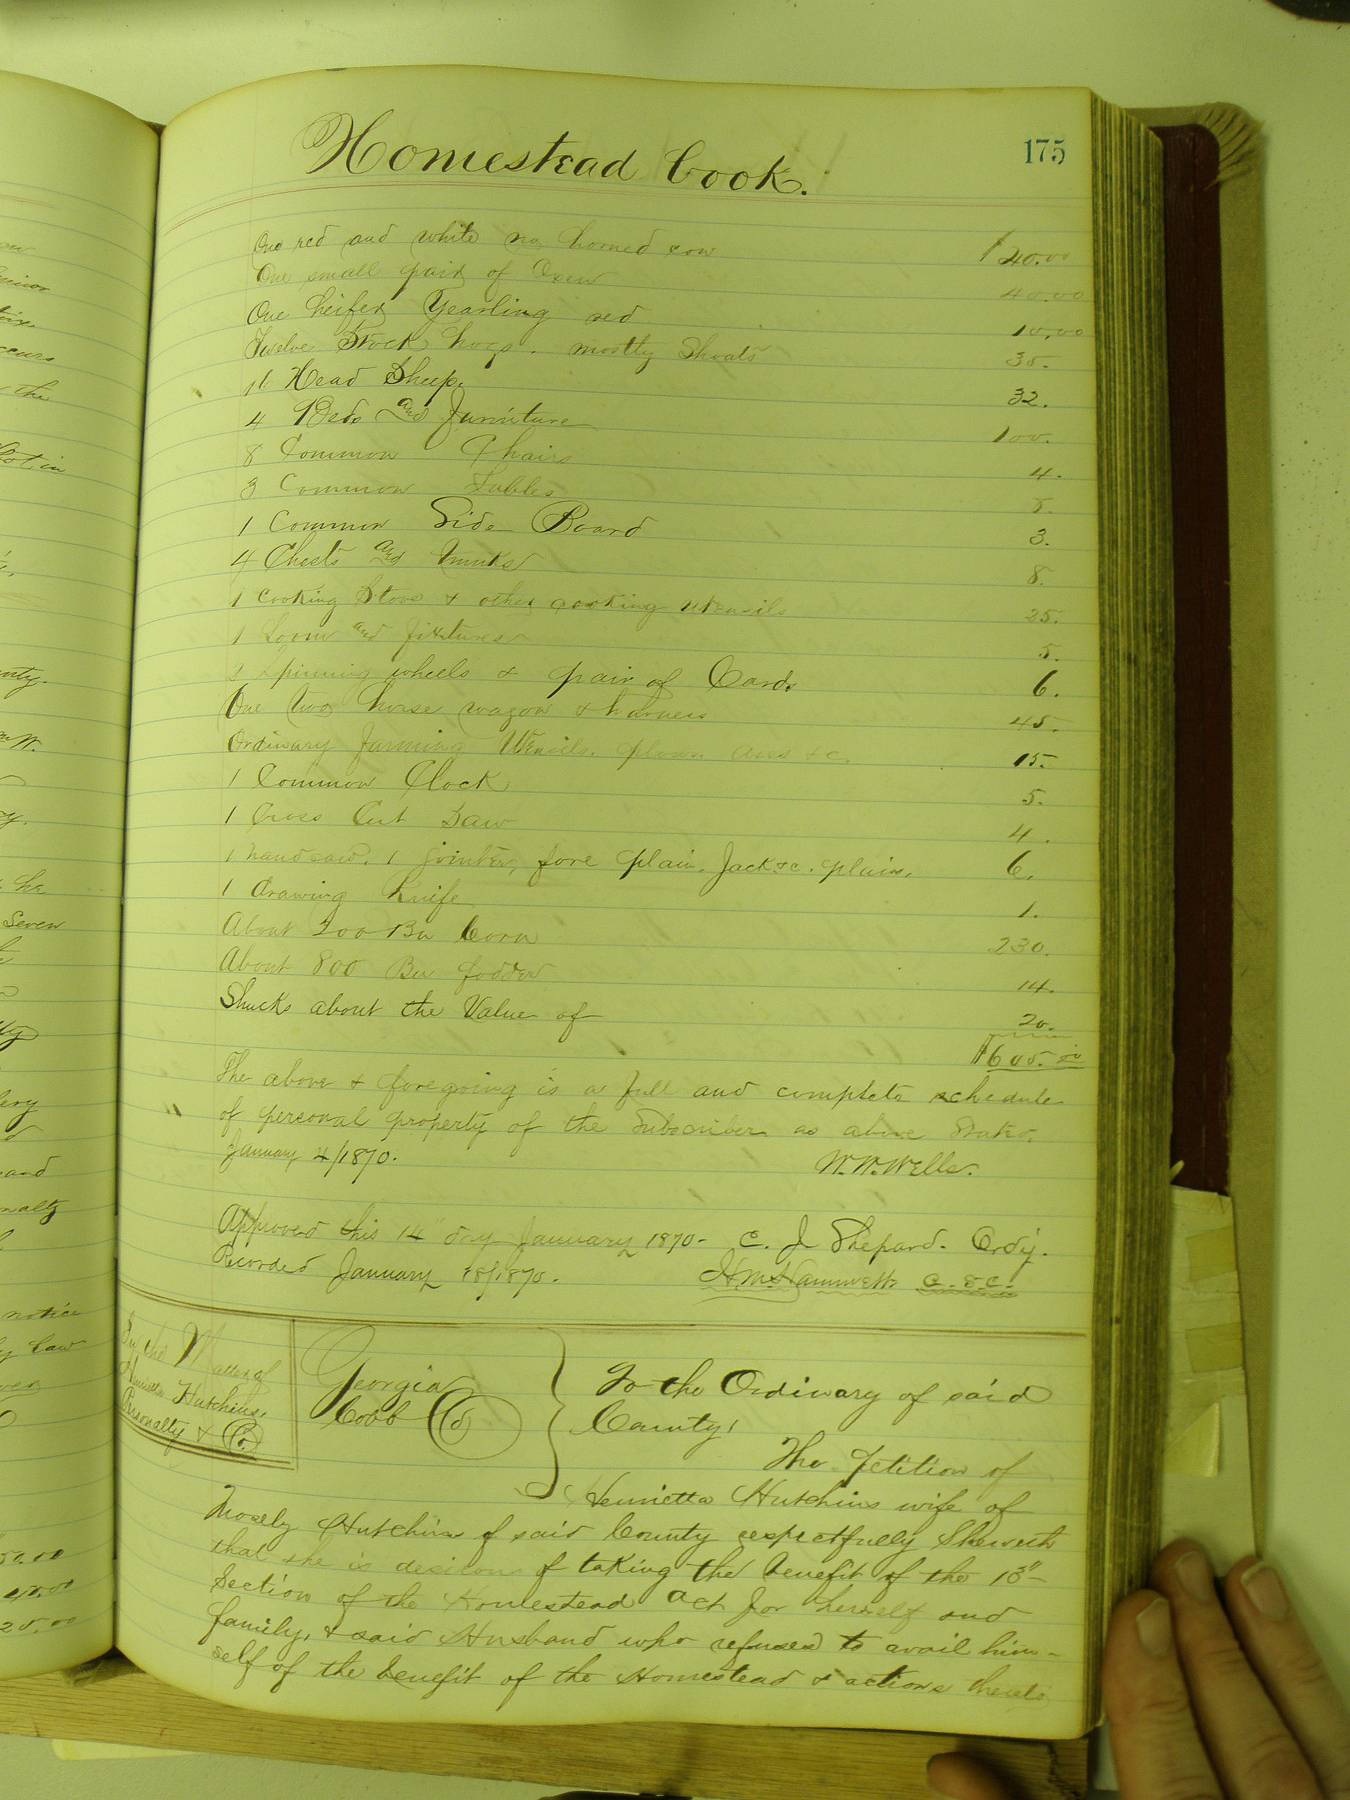 Homestead Book.
175
One red and white no horned cow $20.00
One small pair of Oxen 40.00
One heifer Yearling red 10.00
Twelve Stock hogs. mostly Shoats 35.
16 Head Sheep. 32.
4 Beds and Furniture 100.
8 Common Chairs 4.
3 Common Tables
1 Common Side Board 3.
4 Chests and Trunks 8.
1 Cooking Stove & other cooking utensils 25.
1 Loom and fixtures 5.
Spinning wheels & pair of Cards 6.
One two horse wagon & harness 45.
Ordinary farming Utensils. plows axes &c. 15.
1 Common Clock 5.
1 Cross Cut Saw 4.
1 hand saw. 1 jointer, fore plain. Jack &c. plain. 6.
1 drawing Knife 1.
About 200 Bu Corn 230.
About 800 Bu fodder 14.
Shucks about the Value of 20.
$605.00
The above & foregoing is a full and complete schedule
of personal property of the Subscriber as above Stated.
January 4/1870. W. W. Wells.
Approved this 14" day January 1870- C. J. Shepard. Ordy.
Recorded January 18/1870. H. M. Hammett C. S. C.
In the Matter of
Henrietta Hutchins.
Personalty & Co.
Georgia
Cobb Co
To the Ordinary of said
County,
The Petition of
Henrietta Hutchins wife of
Mosely Hutchins of said County respectfully Sheweth
that she is desirous of taking the benefit of the 13"
Section of the Homestead act for herself and
family, & said Husband who refused to avail him-
self of the benefit of the Homestead & actions thereto